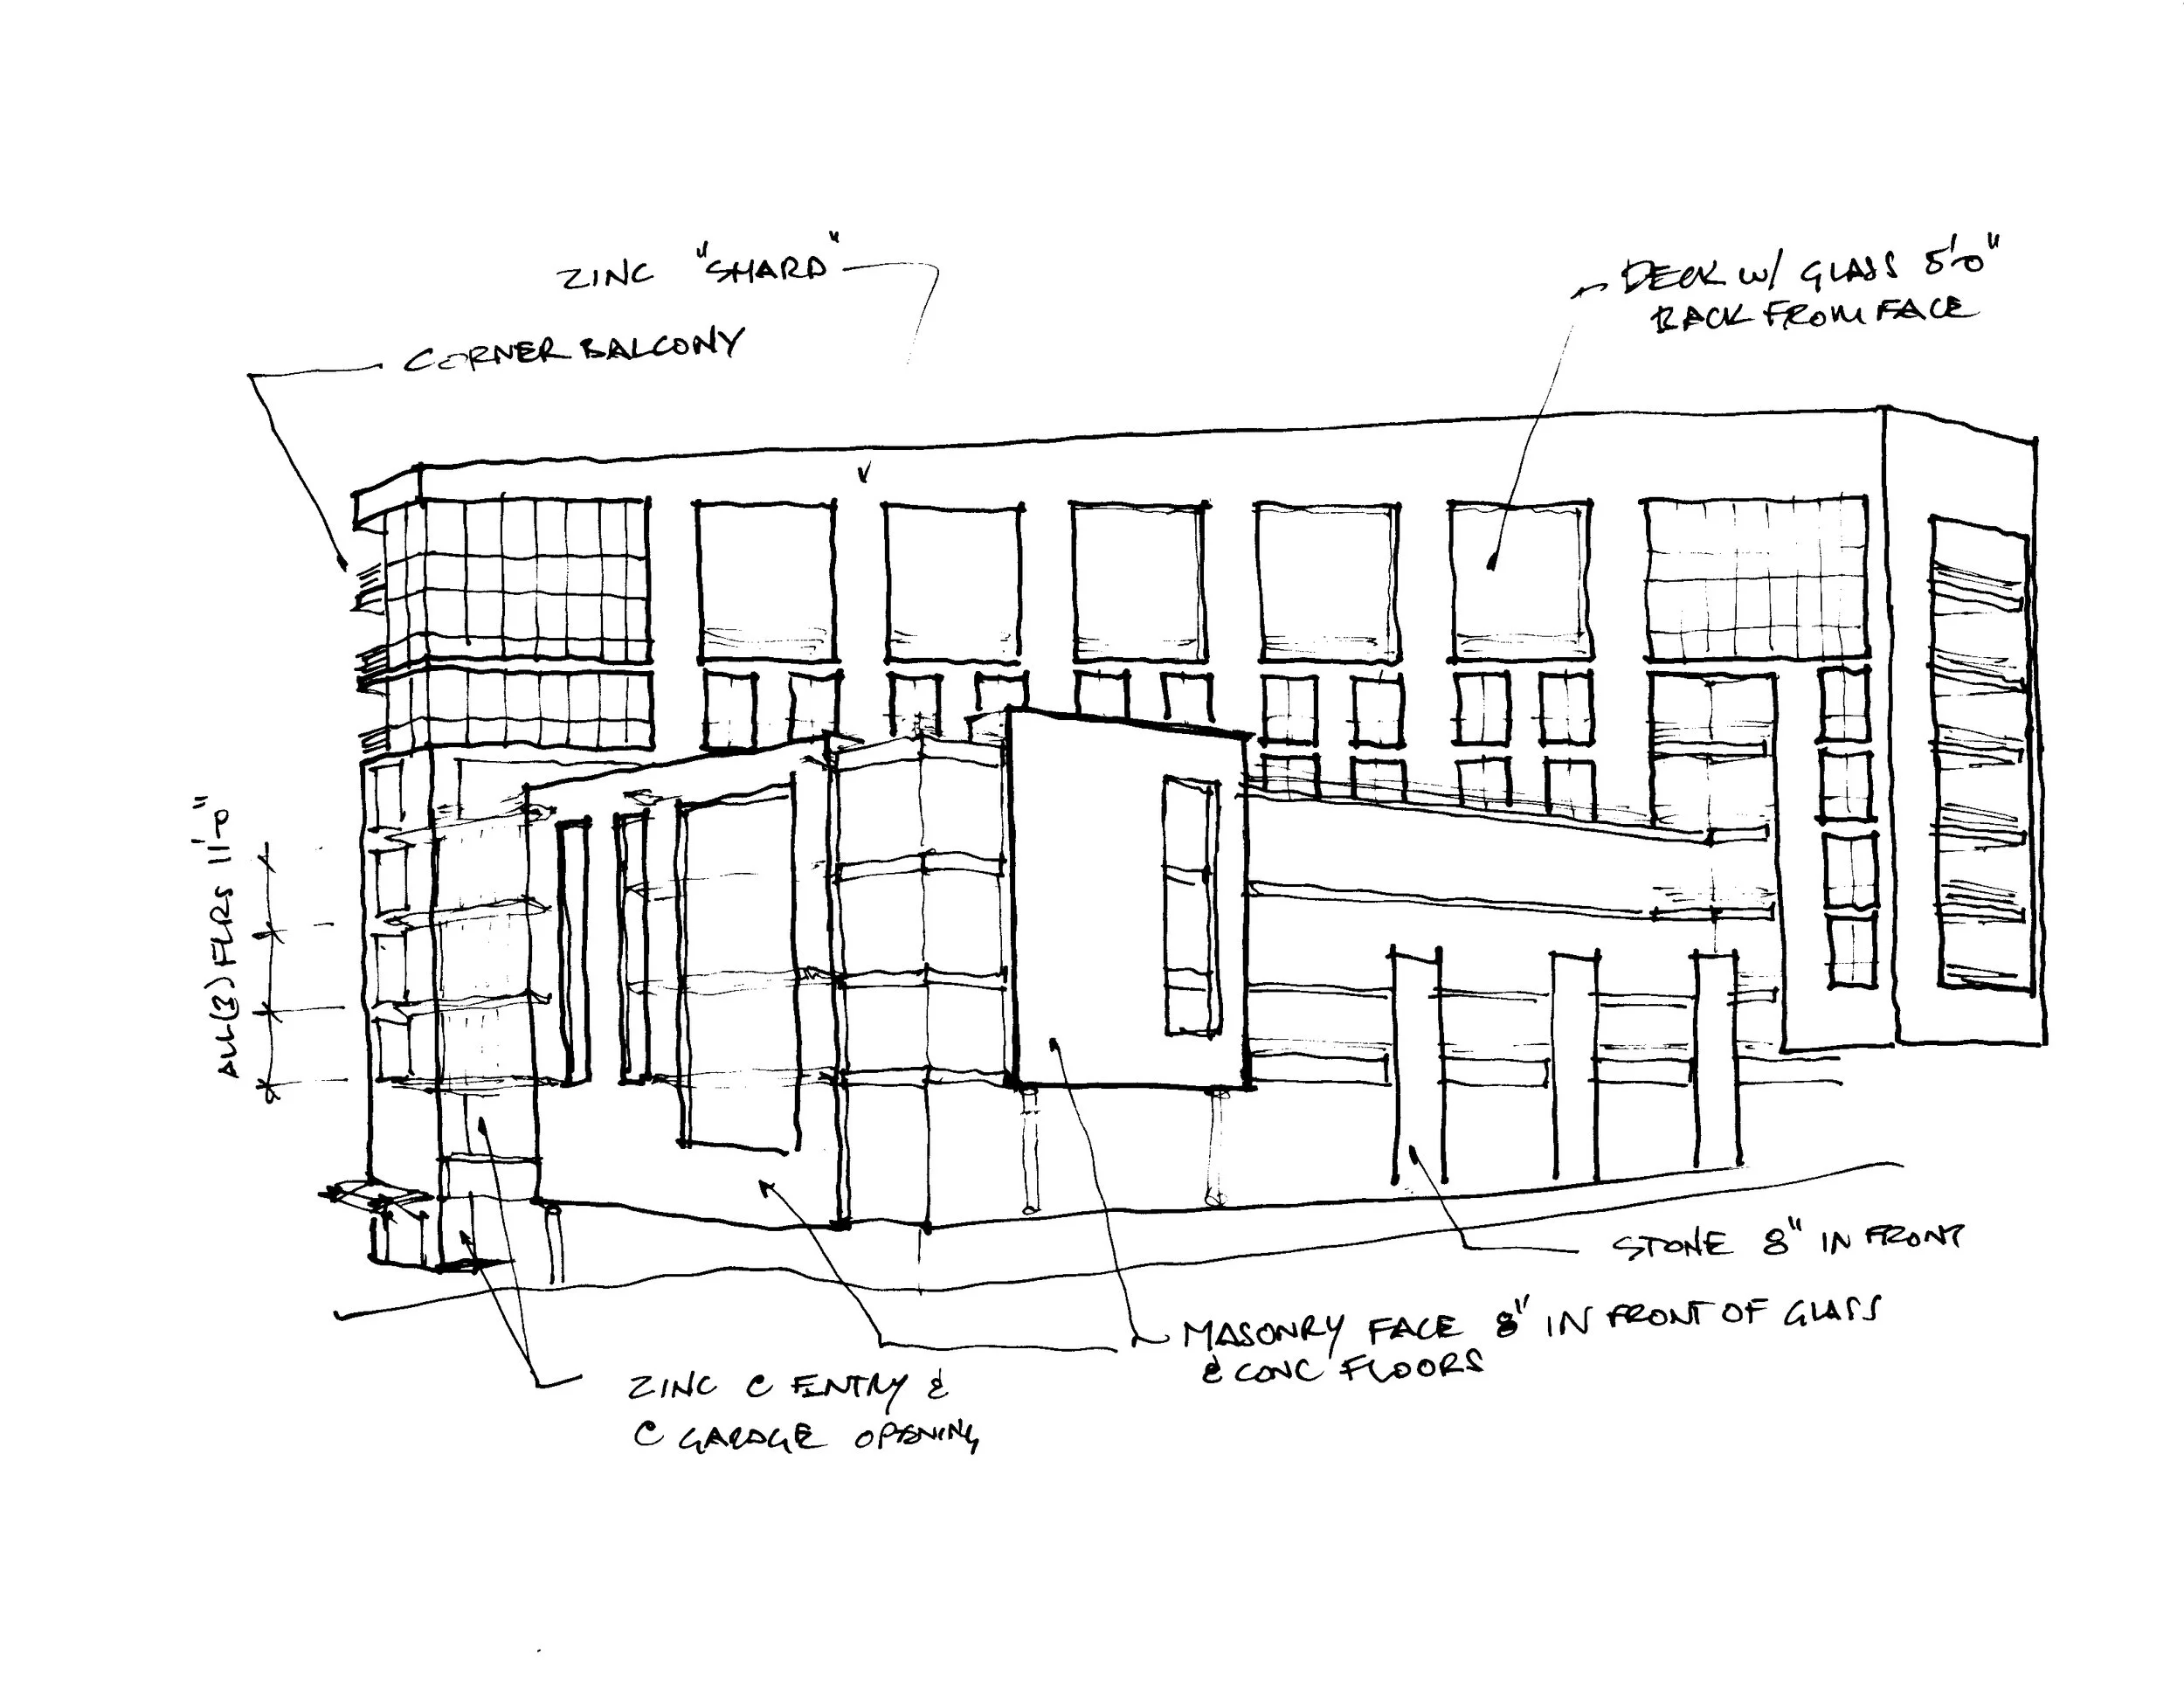 ZINC "SHARD"
CORNER BALCONY
DECK W/ GLASS 5'-0"
BACK FROM FACE
ALL (3) FLRS 11'-0"
STONE 8" IN FRONT
MASONRY FACE 8" IN FRONT OF GLASS
& CONC FLOORS
ZINC @ ENTRY &
@ GARAGE OPENING